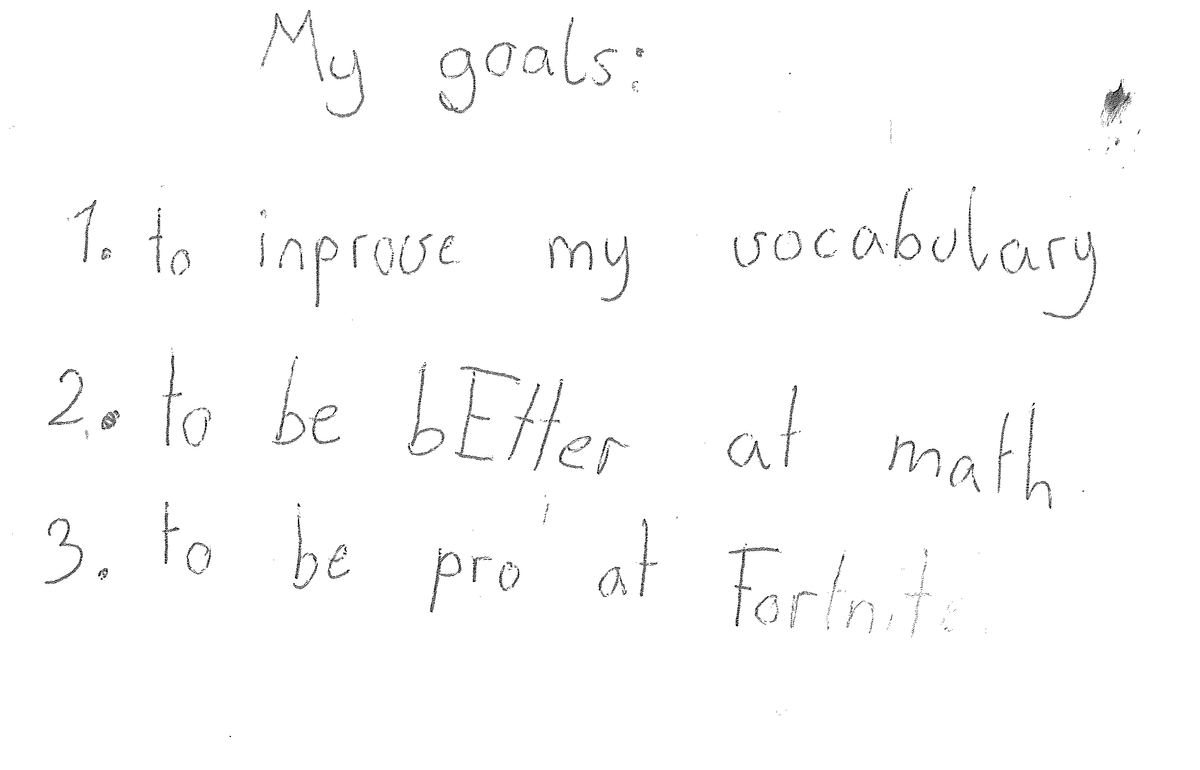 My goals:
1. to inprove my vocabulary
2. to be bEtter at math
3. to be pro at Fortnite.